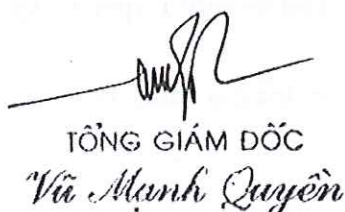 TỔNG GIÁM DỐC
Vũ Mạnh Quyền